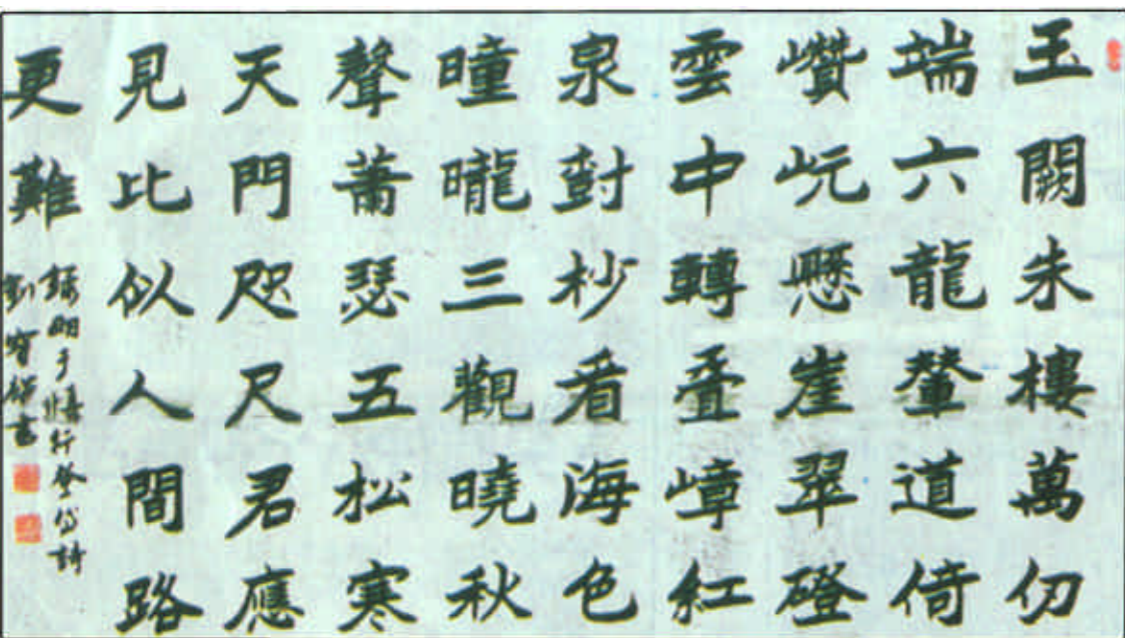 玉闕朱樓萬仞
端六龍輦道倚
巑岏懸崖翠磴
雲中轉叠嶂紅
泉對杪看海色
曈曨三觀曉秋
聲蕭瑟五松寒
天門咫尺君應
見比似人間路
更難
錄明于慎行登岱詩
劉書